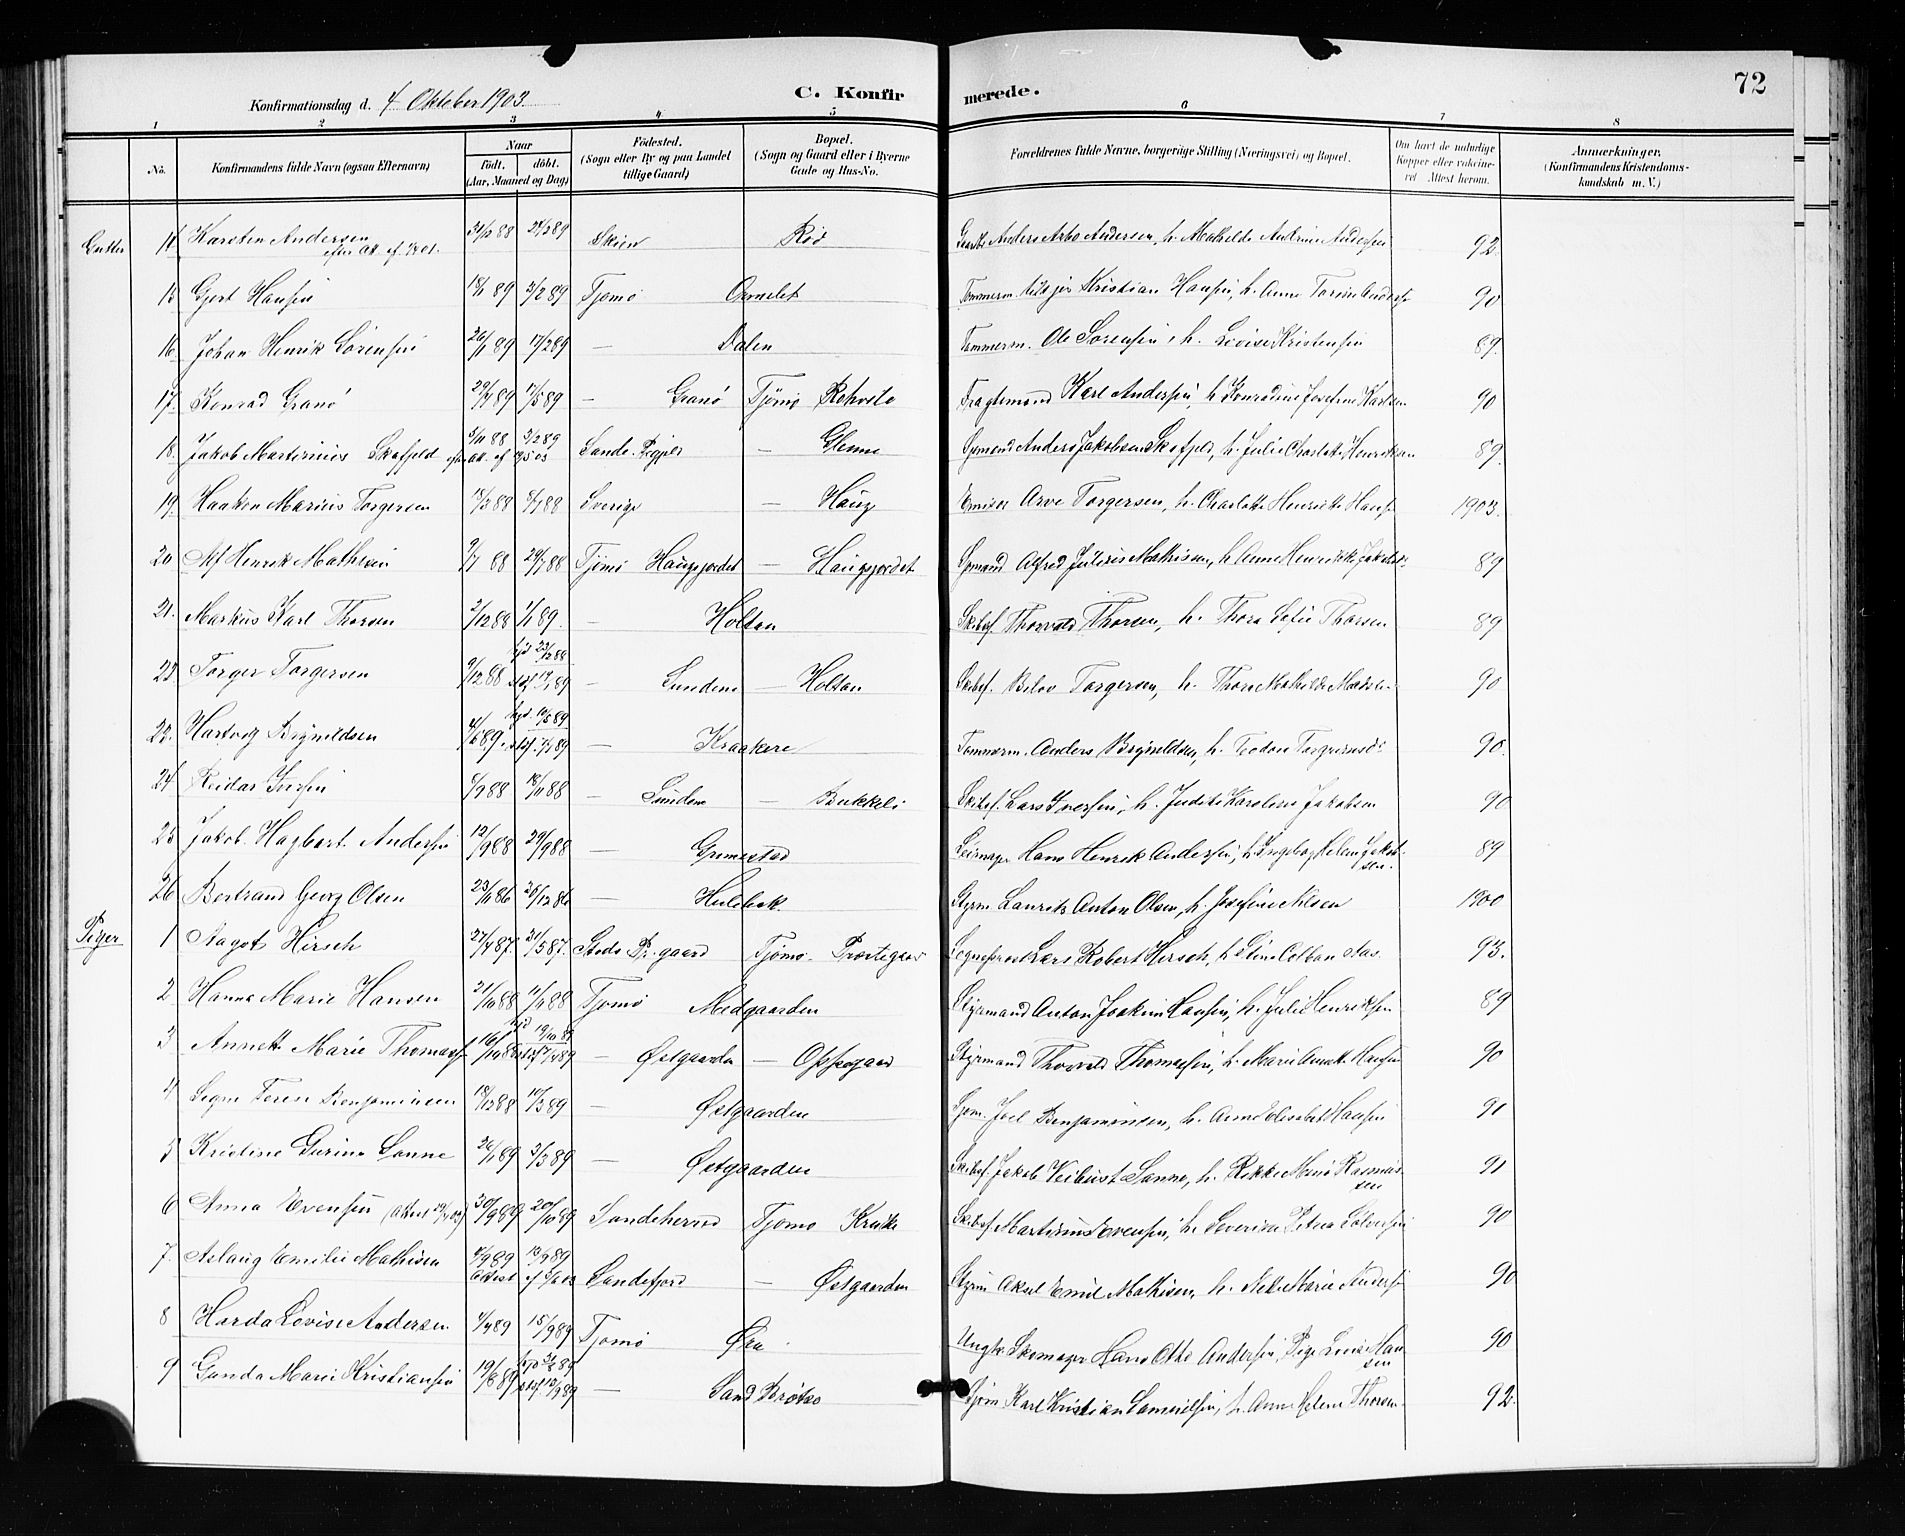 72
Konfirmationsdag d. 4 Oktober 1903. C. Konfirmerede.
1 2 3 4 5 6 7 8
No. Konfirmandens fulde Navn (ogsaa Efternavn) Naar født. døbt. (Aar, Maaned og Dag) Fødested. (Sogn eller By og paa Landet tillige Gaard) Bopæl. (Sogn og Gaard eller i Byerne Gade og Hus-No.) Forældrenes fulde Navne, borgerlige Stilling (Næringsvei) og Bopæl. Om havt de naturlige Kopper eller vaccineret. Attest herom. Anmærkninger. (Konfirmandens Kristendomskundskab m. V.)
Gutter 14 Karsten Andersen 31/12 88 Skien Rød Anders Arbo Andersen, h. Mathilde Andersen 92.
15 Gjert Hansen 18/1 89 3/2 89 Tjømø Ormelet Tømmerm. Nils jør Kristian Hansen, h. Anne 90
16 Johan Henrik Sørensen 26/1 89 17/2 89 — Dalen Tømmerm. Ole Sørensen, h. Lovise Kristensen 89.
17. Konrad Granø 29/4 89 89 — Granø Tjømø Fragtemand Karl Andersen, h. Konradine Josefine Karlsen 90
18. Jakob Martinius Skafjeld 5/11 88 3/2 89 Sande — Glenne Anders Jakobsen Skafjeld, h. Julie Charlotte Henriksen 89.
19. Haakon Marius Torgersen 88 88 Sverige — Haug Arve Torgersen, h. Charlotte Henriette Hansen 1903.
20 Alf Henrik Mathisen 9/7 88 29/7 88 Tjømø Haugsjordet — Haugsjordet Alfred Julius Mathisen, h. Anne Henrikke 89
21. Markus Karl Thorsen 2/12 88 1/1 89. — Holtan Skibsf. Thorvald Thorsen, h. Thora Sofie Thorsen 89
23 Torger Torgersen 9/12 88 89 — Sundene — Holtan Skibsf. Torgersen, h. Thora Mathilde 90
22. Hartvig Brynildsen 89 89 — Kraakere Tømmerm. Anders Brynildsen, h. 90.
24 Reidar Iversen 88 18/11 88 — Sundene — Bukkeli Skibsf. Lars Iversen, h. Judith Karoline Jakobsen 90
25 Jakob Hagbart Andersen 12/9 88 29/9 88 — Grimestad Seilmager Hans Henrik Andersen, h. Ingeborg Helene Jakobsen. 89
26 Bertrand Georg Olsen 23/11 86 26/12 86 — Hulebak Styrm Laurits Anton Olsen, h. Josefine 1900
Piger 1 Aagot Hirsch 27/4 87. 31/5 87. Pr. gaard Tjømø. Prestegaard Sogneprest Lars Robert Hirsch, h. Stine Colban Aas. 93.
2 Hanna Marie Hansen 21/10 88 11/11 88 Tjømø Medgaarden Styrmand Anton Joakim Hansen, h. Julie Henriksen 89
3 Annette Marie Thomassen — Østgaarden — Oppegaard Styrmand Thorvald Thomassen, h. Marie Hansen 90
4 Signe Terese Benjaminsen 18/12 88 10/3 89 — Østgaarden Sjøm. Joel Benjaminsen, h. Anne Elisabet Hansen 91
5 Kristine Gurine Sanne 26/1 89 3/3 89 — Østgaarden Skibsf. Jakob Sanne, h. Rikke Marie Rasmussen 91
6 Anna Evensen 30/9 89 20/10 89 Sandeherred Tjømø Skibsf. Martinius Evensen, h. Severine Petrea Sølversen 90
7. Aslaug Emilie Mathisen 89 89 Attest Sandefjord — Østgaarden Styrm Aksel Emil Mathisen, h. Marie Andersen 90
8 Harda Lovise Andersen 89 15/9 89 Tjømø Øra Ungkr. Skomager Hans Otto Andersen, Pige Hansen 90
9 Gunda Marie Kristiansen 19/6 89 — Sand Brøtsø Karl Kristian Samuelsen, h. Anne Helene Thorsen 92.